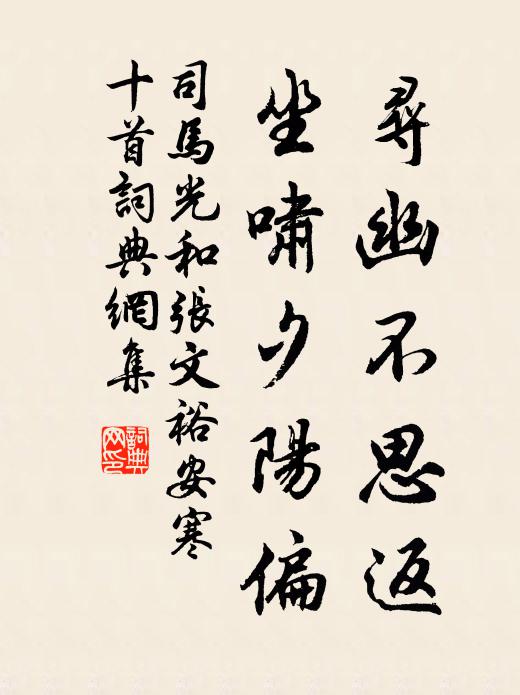 尋幽不思返
坐嘯夕陽偏
司馬光和張文裕安寒
十首詞典網集
詞典网印